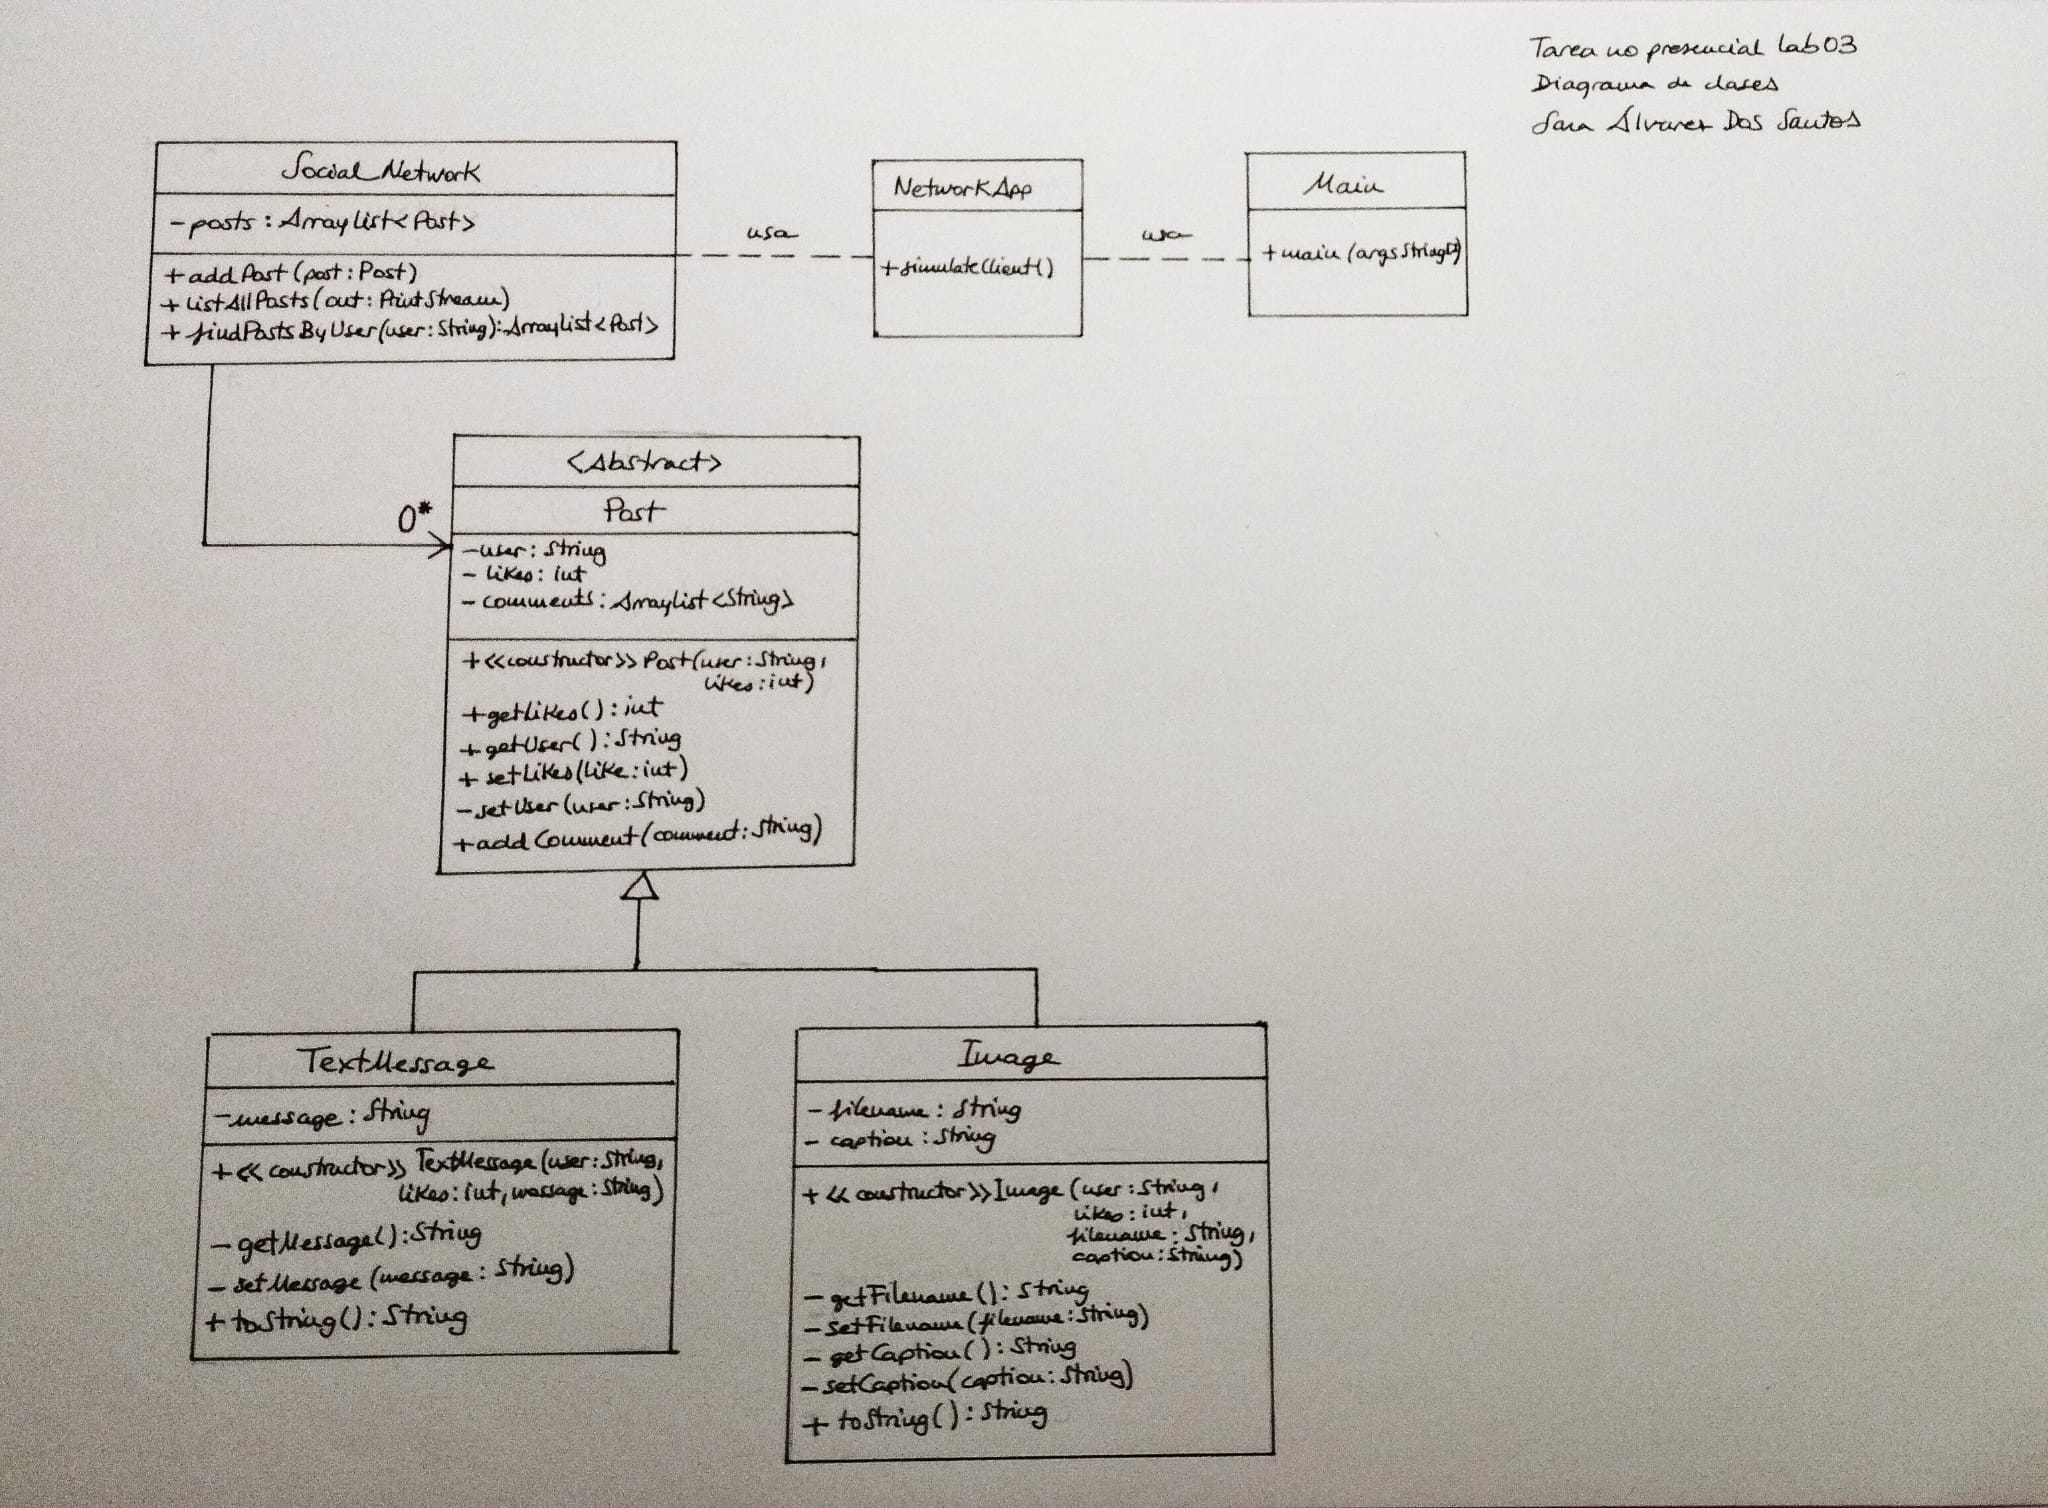 Tarea no presencial lab03
Diagrama de clases
Sara Álvarez Dos Santos
Social Network
- posts : ArrayList<Post>
+ addPost (post : Post)
+ listAllPosts (out : PrintStream)
+ findPostsByUser (user : String) : ArrayList<Post>
usa
NetworkApp
+ simulateClient()
usa
Main
+ main (args String[])
0*
<Abstract>
Post
- user : String
- likes : int
- comments : ArrayList<String>
+ <<constructor>> Post(user : String,
likes : int)
+ getLikes() : int
+ getUser() : String
+ setLikes(like : int)
- setUser (user : String)
+ addComment (comment : String)
TextMessage
- message : String
+ << constructor>> TextMessage (user : String,
likes : int, message : String)
- getMessage() : String
- setMessage (message : String)
+ toString() : String
Image
- filename : String
- caption : String
+ << constructor>> Image (user : String,
likes : int,
filename : String,
caption : String)
- getFilename () : String
- setFilename (filename : String)
- getCaption() : String
- setCaption (caption : String)
+ toString() : String